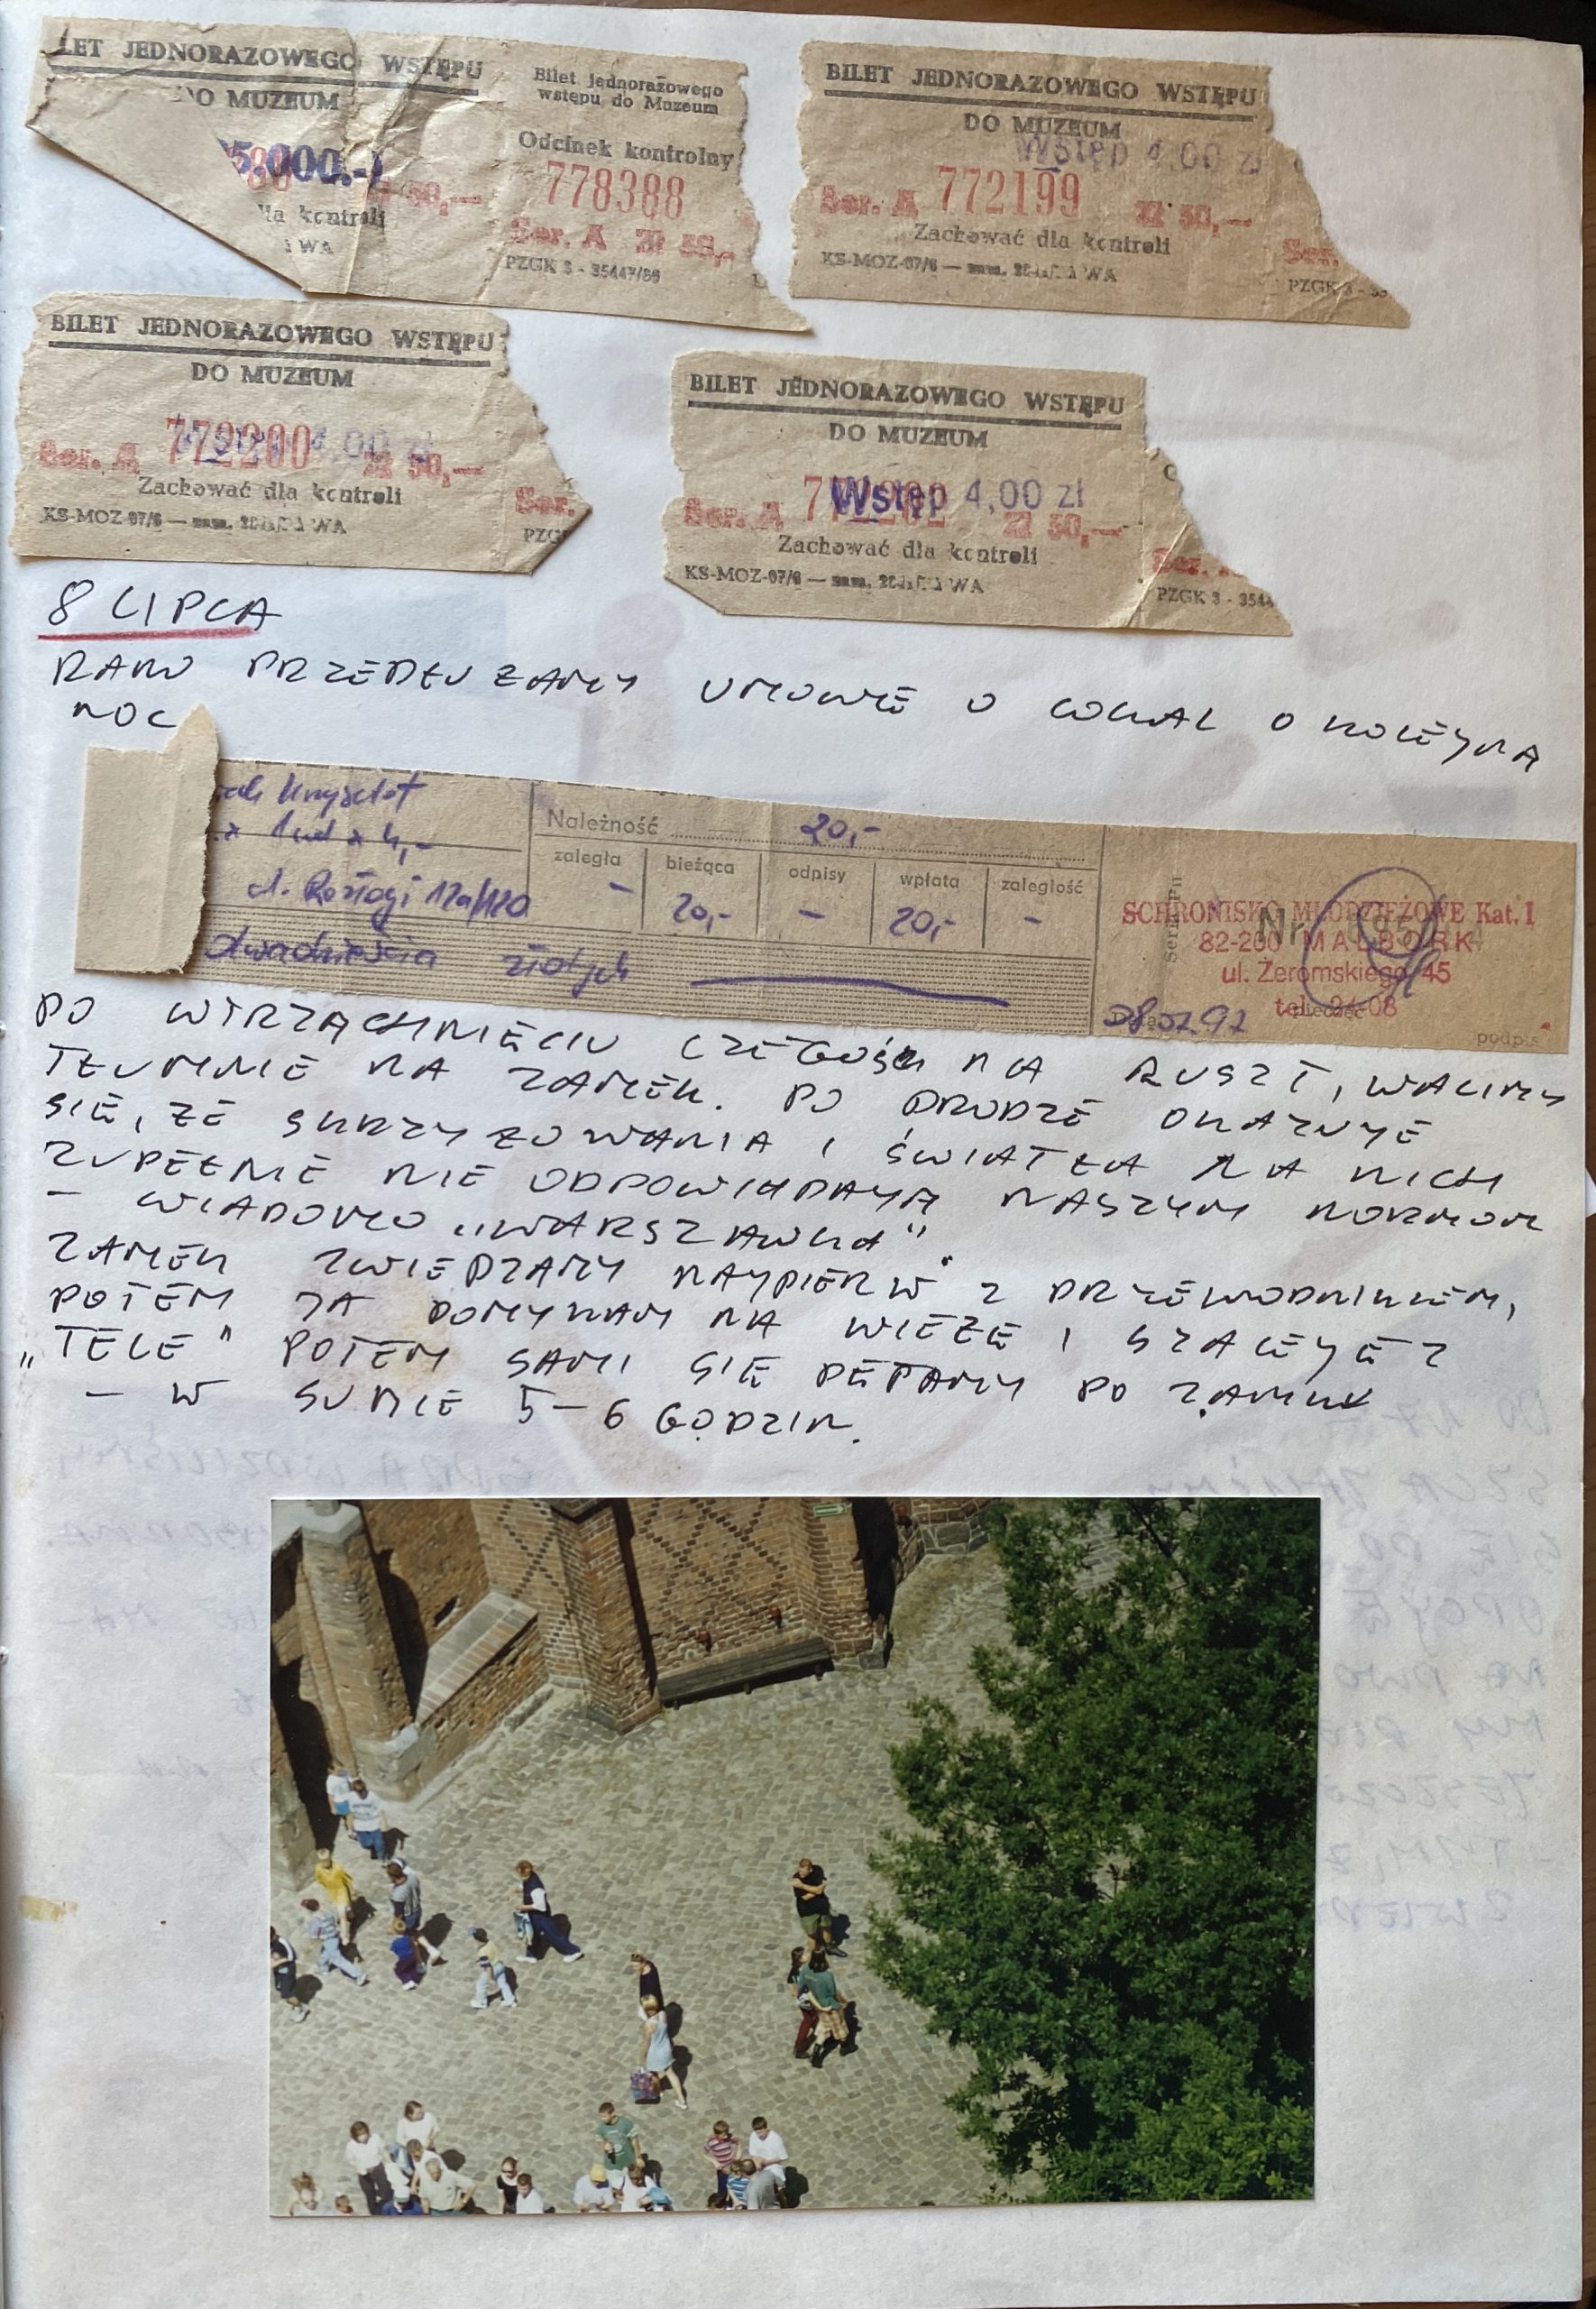 BILET JEDNORAZOWEGO WSTĘPU
DO MUZEUM
5.000.-
Zł 50,—
dla kontroli
WA
Bilet jednorazowego
wstępu do Muzeum
Odcinek kontrolny
778388
Ser. A Zł 50,-
PZGK 3 - 35447/86
BILET JEDNORAZOWEGO WSTĘPU
DO MUZEUM
Wstęp 4,00 zł
Ser. A 772199 Zł 50,—
Zachować dla kontroli
KS-MOZ-07/6 — zam. WA
Ser.
PZGK 3 - 35
BILET JEDNORAZOWEGO WSTĘPU
DO MUZEUM
Wstęp 4,00 zł
Ser. A 772200 Zł 50,—
Zachować dla kontroli
KS-MOZ-07/6 — zam. WA
Ser.
PZG
BILET JEDNORAZOWEGO WSTĘPU
DO MUZEUM
Wstęp 4,00 zł
Ser. A 772202 Zł 50,—
Zachować dla kontroli
KS-MOZ-07/6 — zam. WA
Ser.
PZGK 3 - 3544
8 LIPCA
RANO PRZEDŁUŻAMY UMOWĘ O LOKAL O KOLEJNĄ
NOC
Krzysztof
x 4,-
Rozłogi 12a/120
dwadzieścia złotych
Należność 20,-
zaległa bieżąca odpisy wpłata zaległość
- 20,- - 20,- -
Seria Pn
Nr
SCHRONISKO MŁODZIEŻOWE Kat. I
82-200 MALBORK
ul. Żeromskiego 45
tel. 24-08
pieczęć
08.07.97
podpis
PO WTRZĄCHNIĘCIU CZEGOŚ NA RUSZT, WALIMY
TŁUMNIE NA ZAMEK. PO DRODZE OKAZUJE
SIĘ, ŻE SKRZYŻOWANIA I ŚWIATŁA NA NICH
ZUPEŁNIE NIE ODPOWIADAJĄ NASZYM NORMOM
– WIADOMO „WARSZAWKA".
ZAMEK ZWIEDZAMY NAJPIERW Z PRZEWODNIKIEM,
POTEM JA POMYKAM NA WIEŻĘ I SZALEJĘ Z
„TELE" POTEM SAMI SIĘ PĘTAMY PO ZAMKU
– W SUMIE 5–6 GODZIN.